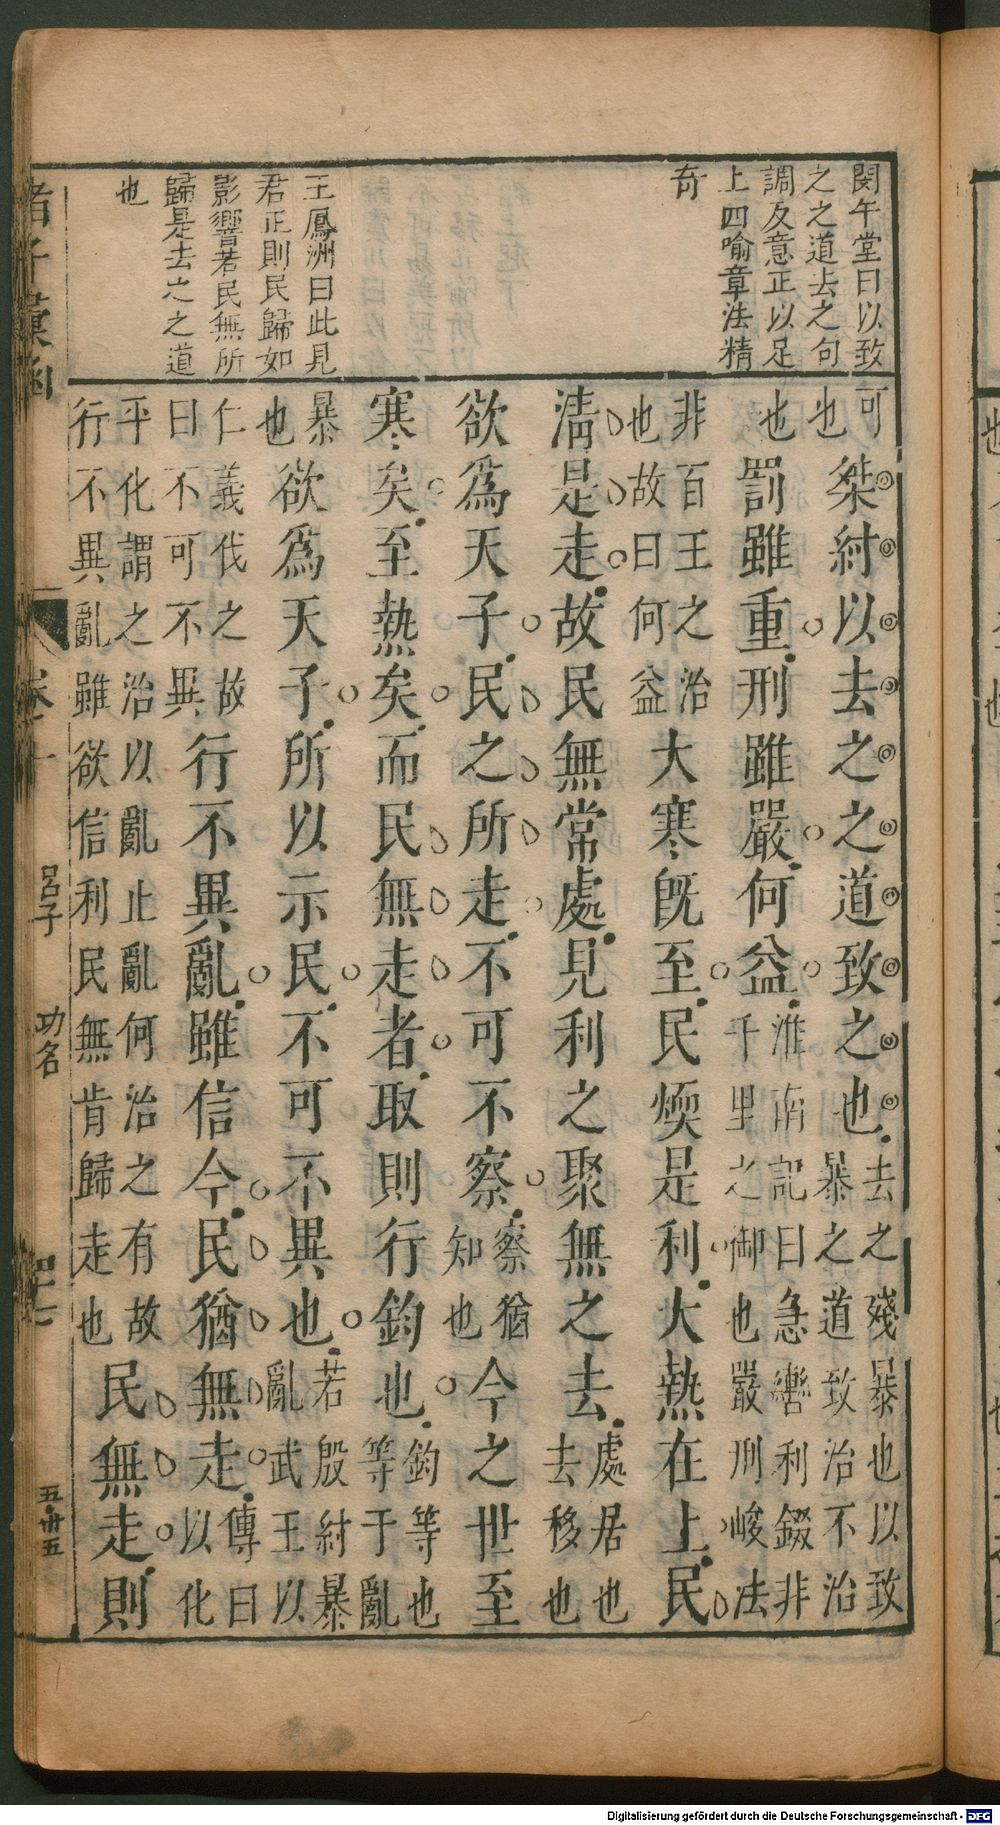 閔午堂曰以致
之之道去之句
調反意正以足
上四喻章法精
奇
王鳳洲曰此見
君正則民歸如
影響若民無所
歸是去之之道
也
可
也
桀紂以去之之道致之也
去之殘暴也以致
暴之道致治不治
也
罰雖重刑雖嚴何益
淮南記曰急轡利錣非
千里之御也嚴刑峻法
非百王之治
也故曰何益
大寒旣至民煗是利大熱在上民
清是走故民無常處見利之聚無之去
處居也
去移也
欲爲天子民之所走不可不察
察猶
知也
今之世至
寒矣至熱矣而民無走者取則行鈞也
鈞等也
等于亂
暴
也
欲爲天子所以示民不可不異也
若殷紂暴
亂武王以
仁義伐之故
曰不可不異
行不異亂雖信今民猶無走
傳曰
以化
平化謂之治以亂止亂何治之有故
行不異亂雖欲信利民無肯歸走也
民無走則
諸子彙函
卷十
呂子
功名
四十七
五卅五
Digitalisierung gefördert durch die Deutsche Forschungsgemeinschaft - DFG